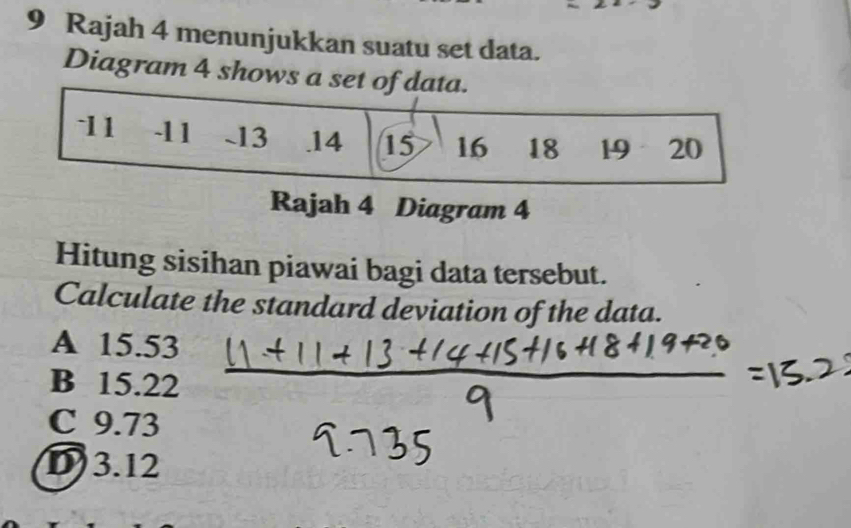 9 Rajah 4 menunjukkan suatu set data.
Diagram 4 shows a set of data.
11 11 13 14 15 16 18 19 20
Rajah 4 Diagram 4
Hitung sisihan piawai bagi data tersebut.
Calculate the standard deviation of the data.
A 15.53
11+11+13+14+15+16+18+19+20
B 15.22
9
=15.2
C 9.73
9.735
D 3.12